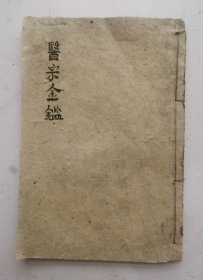 醫宗金鑑